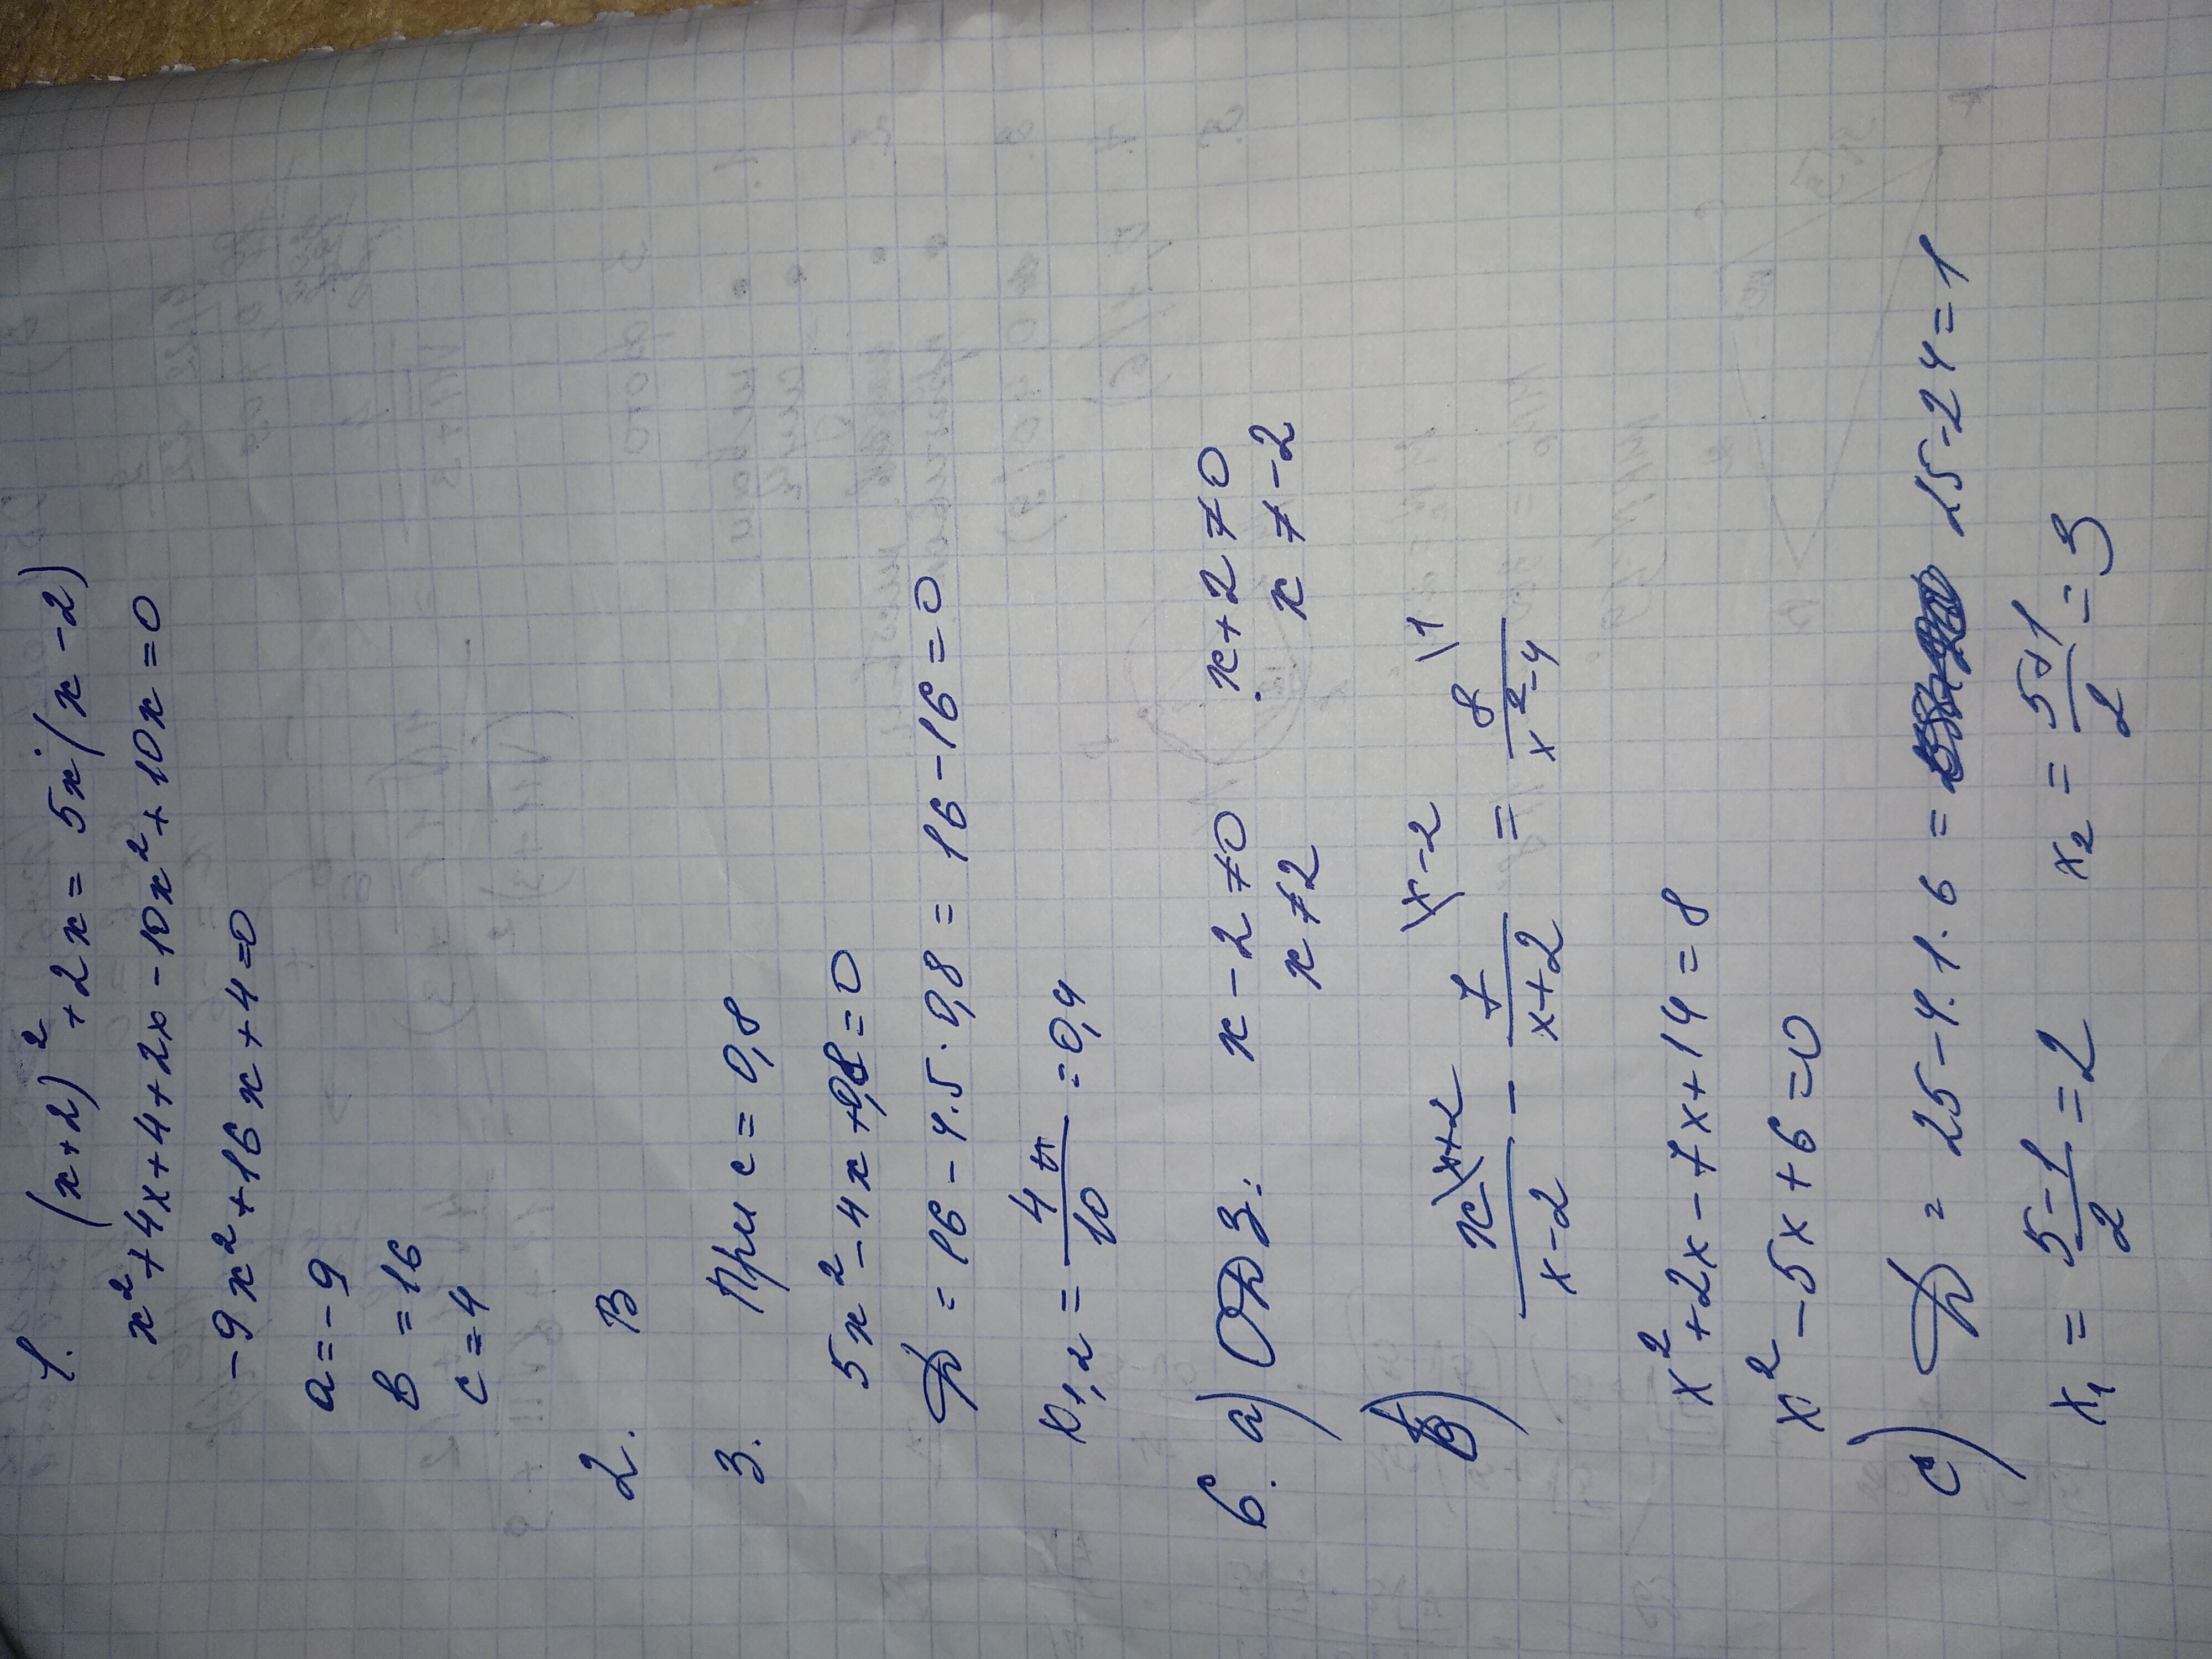 1. (x+2)² + 2x = 5x·(x-2)
x²+4x+4+2x-10x²+10x=0
-9x²+16x+4=0
a=-9
b=16
c=4
2. B
3. При c=0,8
5x²-4x+0,8=0
D = 16-4·5·0,8 = 16-16=0
x1,2 = 4/10 = 0,4
6. a) ОДЗ: x-2≠0 x+2≠0
x≠2 x≠-2
B) x\x+2/x-2 - 7\x-2/x+2 = 8\1/x²-4
x²+2x-7x+14=8
x²-5x+6=0
c) D = 25-4·1·6 = 25-24=1
x1 = 5-1/2 = 2 x2 = 5+1/2 = 3